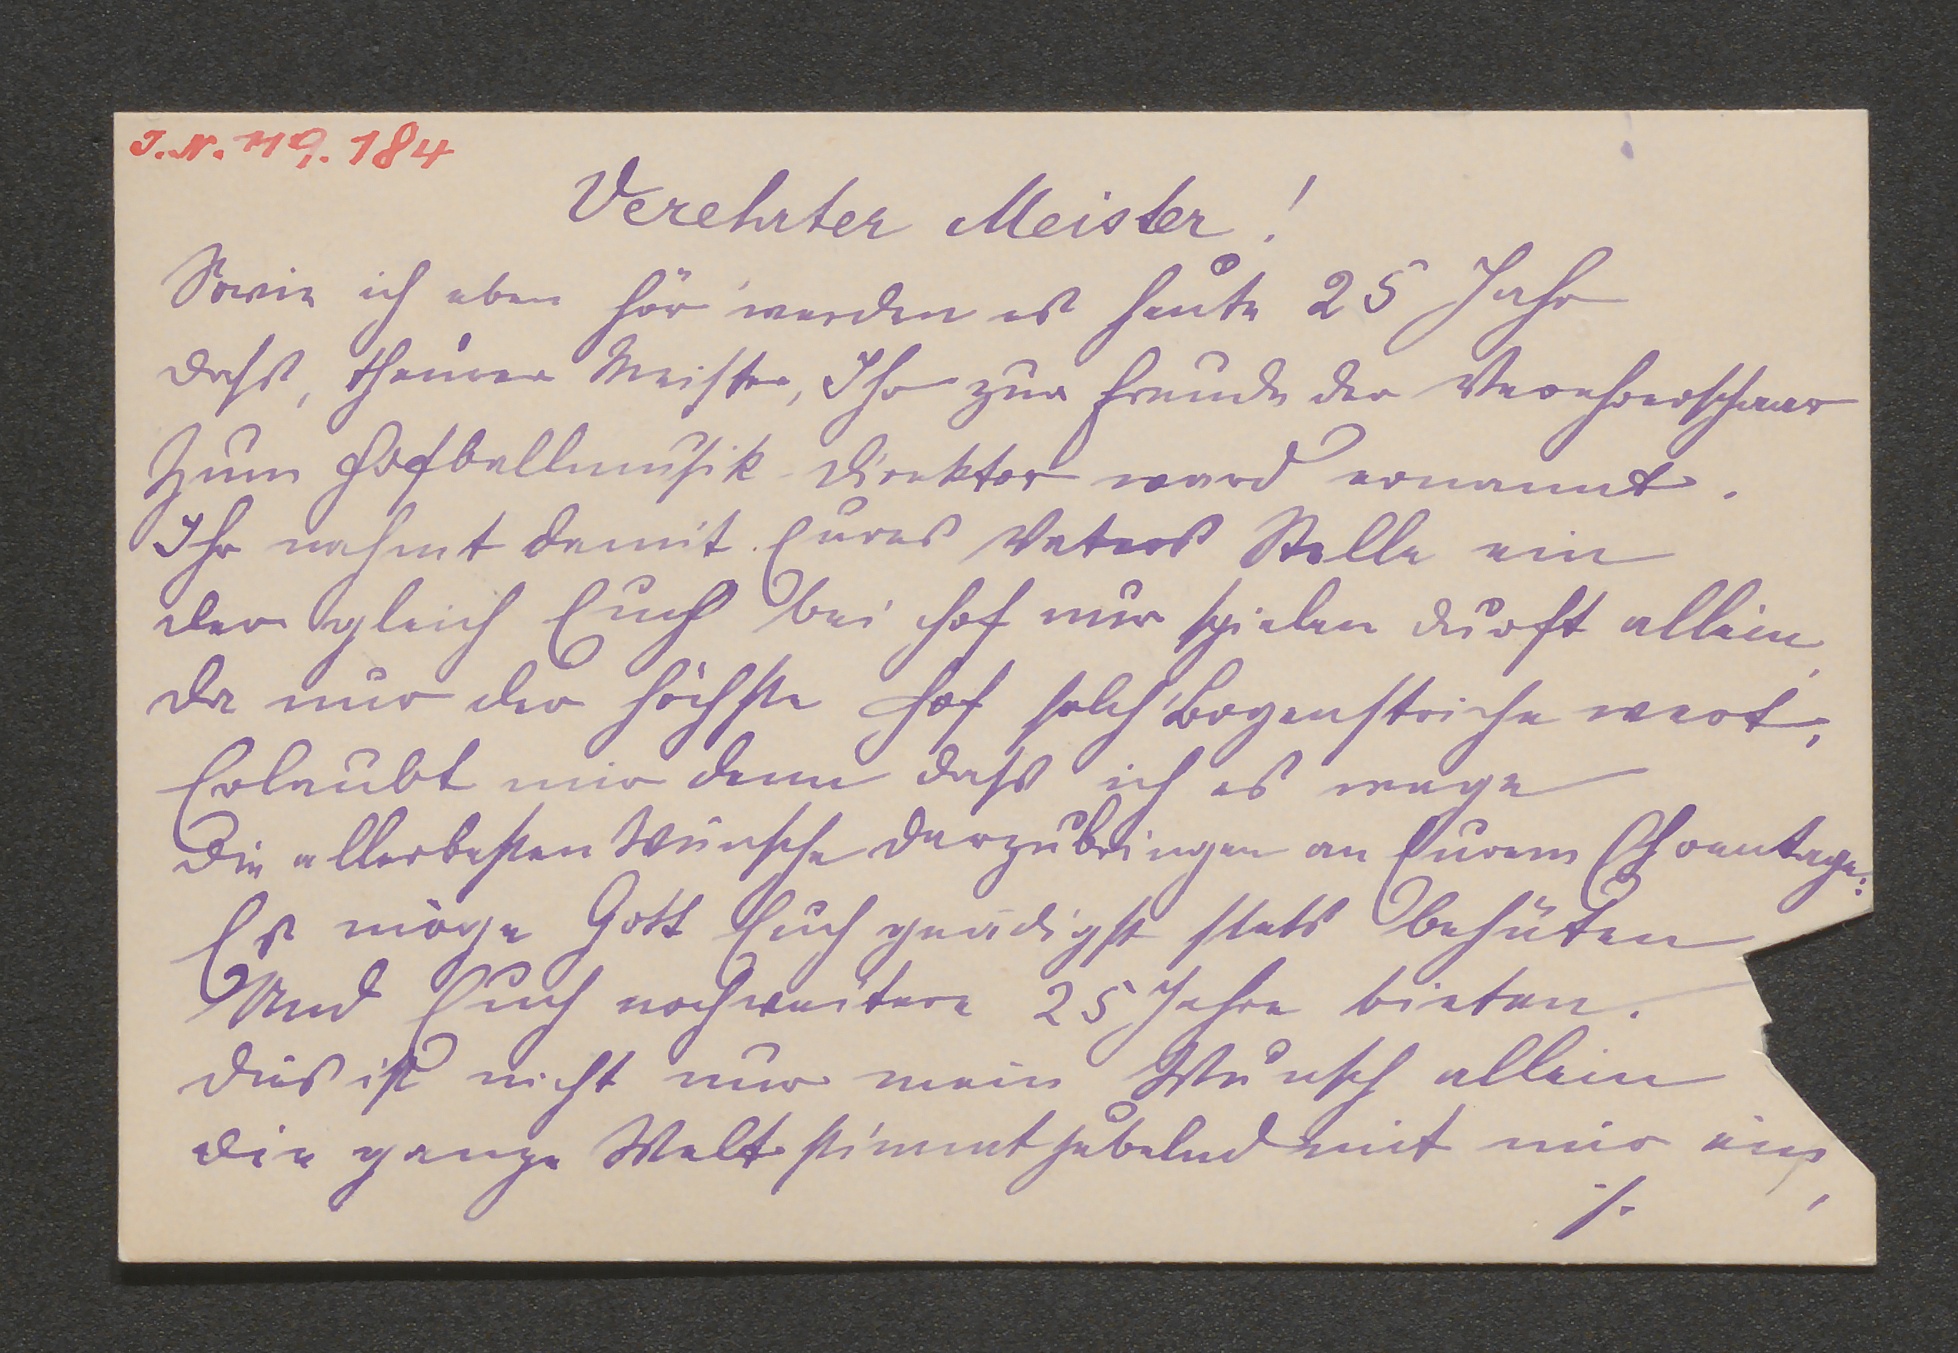 J.N. 119.184
Verehrter Meister!
Sowie ich eben hör werden es heute 25 Jahr
dass, theurer Meister, Ihr zur Freude der Verehrerschaar
Zum Hofballmusik-Direktor ward ernannt.
Ihr nahmt damit Eures Vaters Stelle ein
der gleich Euch bei Hof nur spielen durft allein,
da nur der höchste Hof solch' Bogenstriche wert,
Erlaubt mir denn dass ich es wage
Die allerbesten Wünsche darzubringen an Eurem Ehrentage:
Es möge Gott Euch gnädigst stets behüten
Und Euch noch weitere 25 Jahre bieten.
Dies ist nicht nur mein Wunsch allein
die ganze Welt stimmt jubelnd mit mir ein,
/.